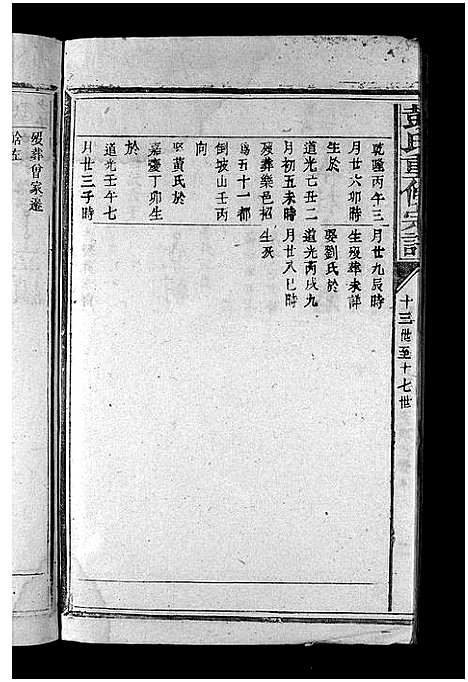 彭氏重修宗譜
十三世至十七世
乾隆丙午三月廿九辰時
月廿六卯時生歿葬未詳
生於 娶劉氏於
道光亡丑二道光丙戌九
月初五未時月廿八巳時
歿葬樂邑招生歿
鳥五十一都
倒坡山壬丙
向
娶黃氏於
嘉慶丁卯生
於
道光壬午七
月廿三子時
歿葬曾家邊